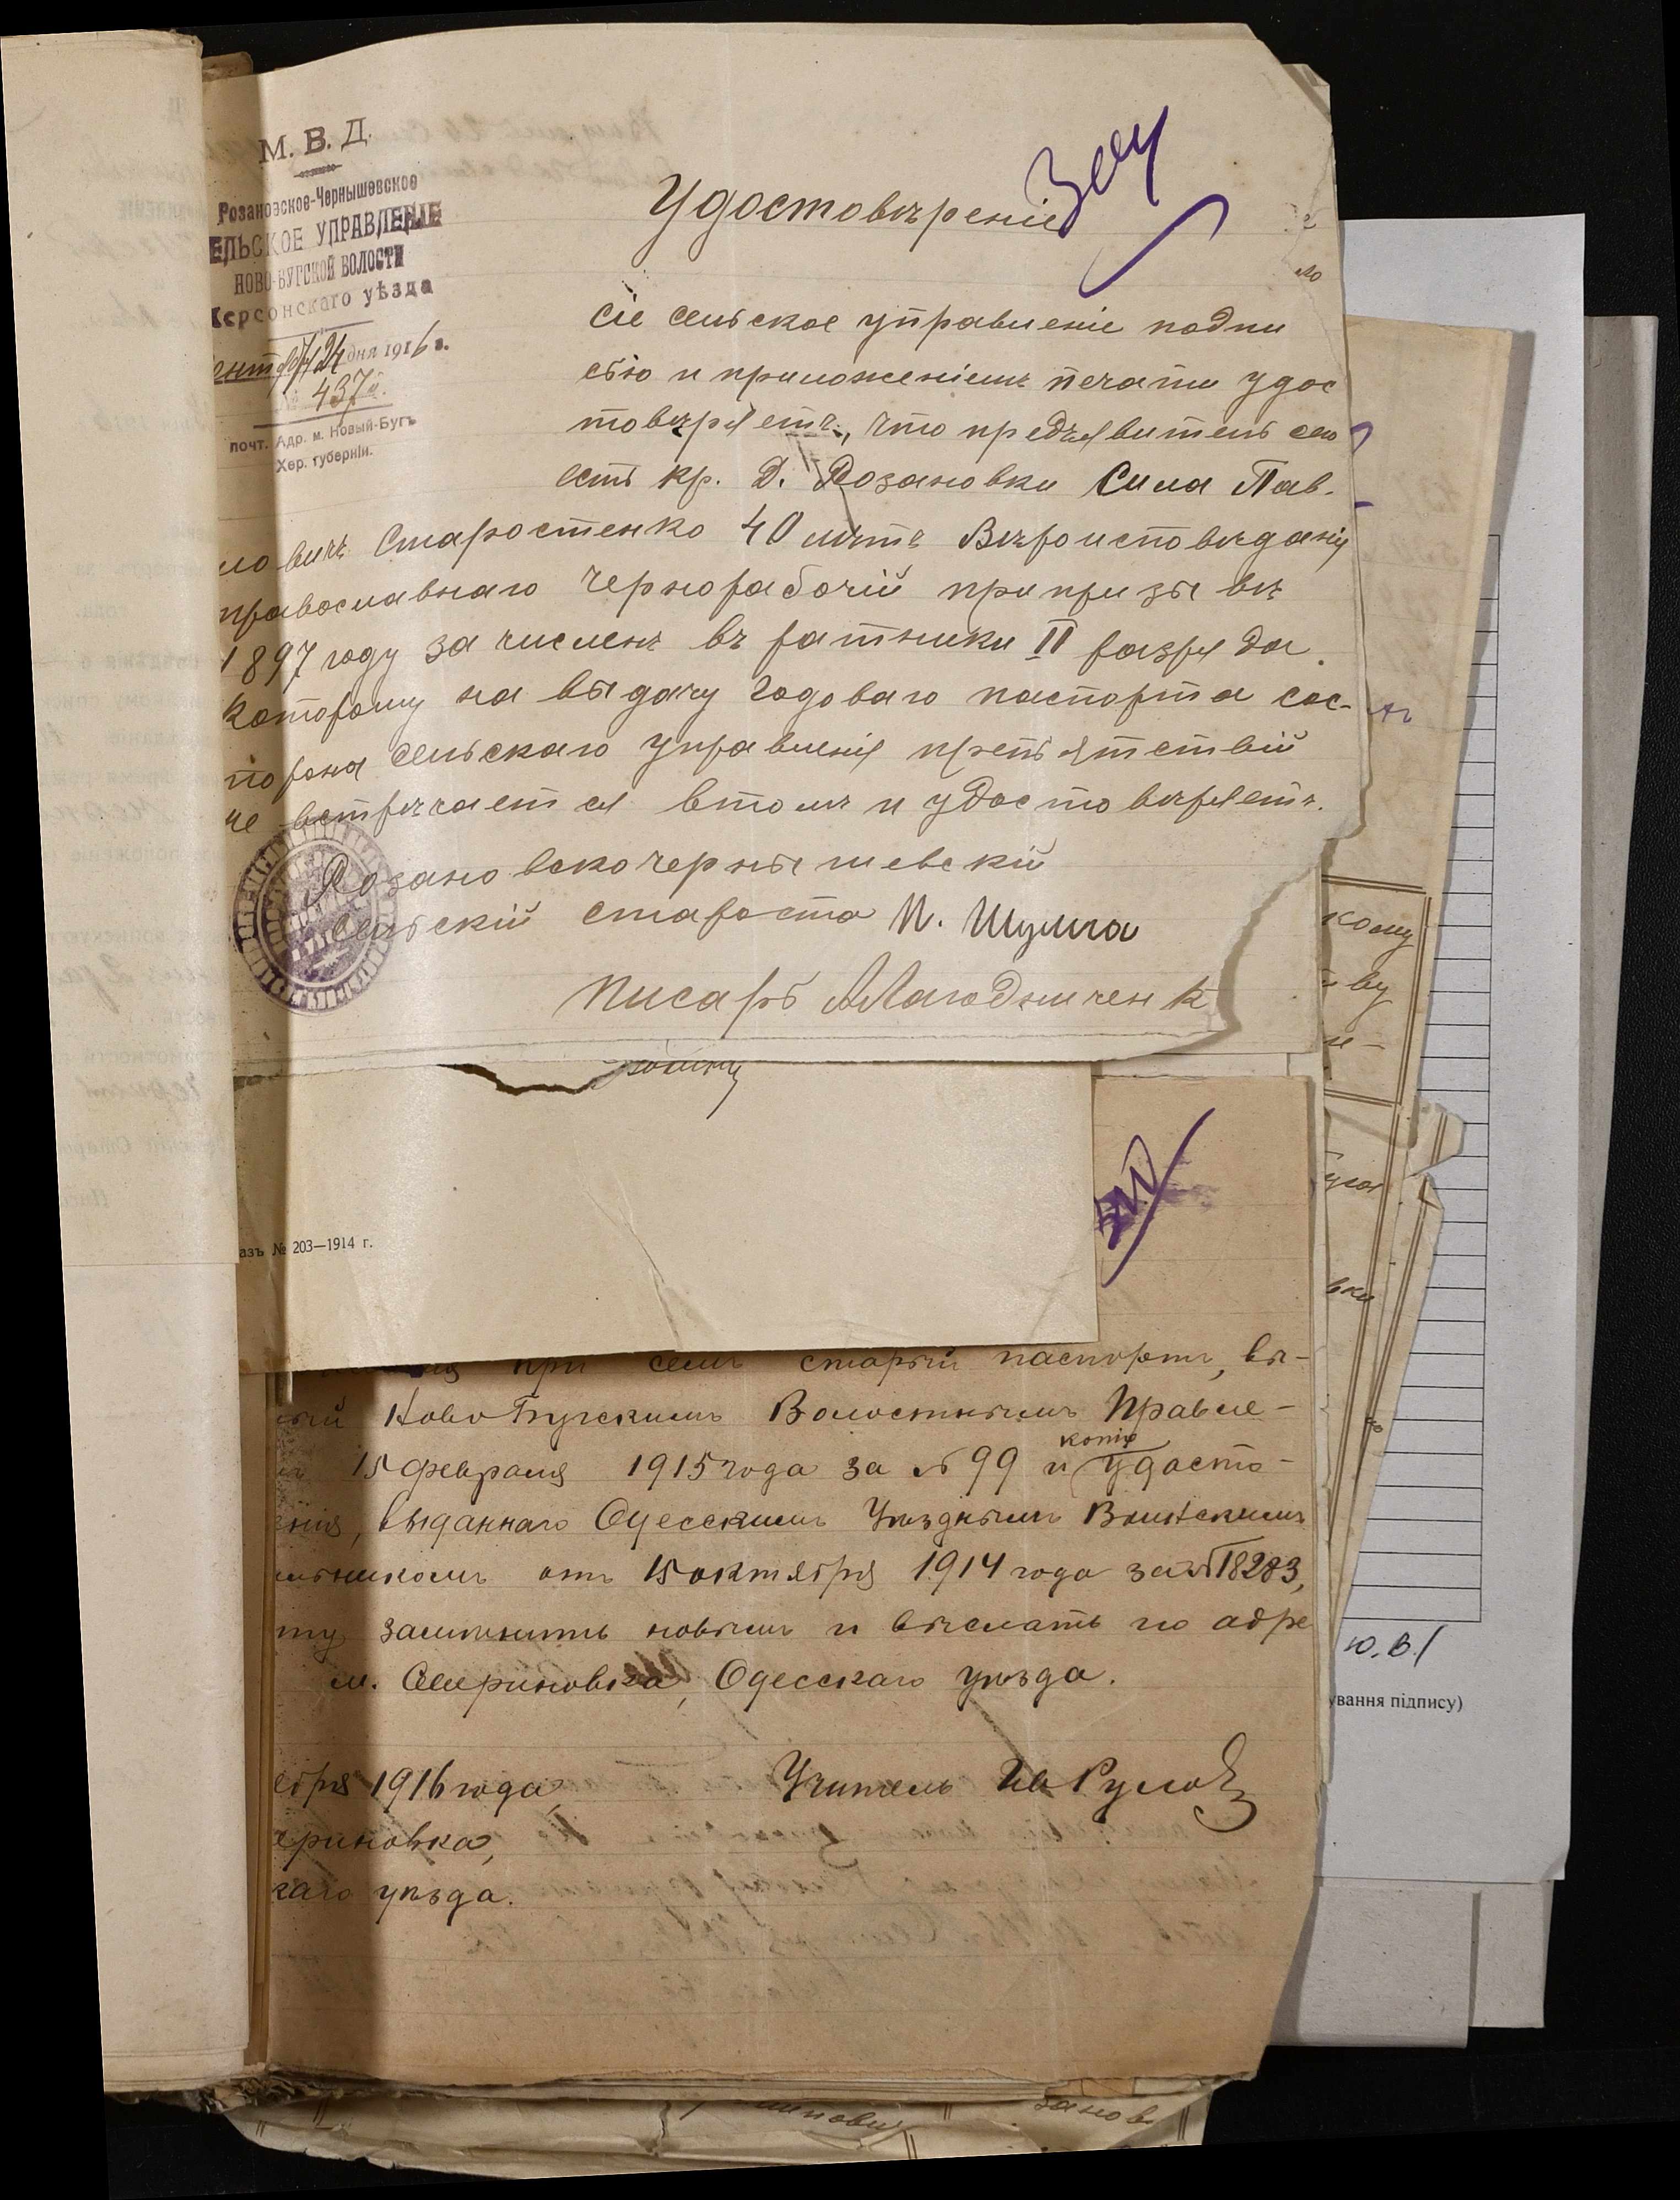 М. В. Д.
Розановское-Чернышевское
ЕЛЬСКОЕ УПРАВЛЕНІЕ
НОВО-БУГСКОЙ ВОЛОСТИ
Херсонскаго уѣзда
24 дня 1916 г.
№ 437
почт. Адр. м. Новый-Бугъ
Хер. губерніи.
Удостовѣреніе
Сіе сельское управленіе подпи
сью и приложеніемъ печати удос
товѣряетъ, что предъявитель сего
есть кр. Д. Розановки Сила Пав-
ловичъ Старостенко 40 лѣтъ Вѣроисповѣданія
православнаго Чернорабочій при призывѣ
1897 году зачисленъ въ ратники II разряда.
Которому на выдачу годоваго паспорта сос-
тороны сельскаго управленія препятствій
не встрѣчается втомъ и удостовѣряетъ.
Розановскочернышевскій
сельскій староста П. Шульга
писарь
азъ № 203—1914 г.
при семъ старый паспортъ, вы-
Ново Бугскимъ Волостнымъ Правле-
15 февраля 1915 года за № 99 и копію удосто-
енія, выданнаго Одесскимъ Уѣзднымъ Воинскимъ
альникомъ отъ 15 октября 1914 года за № 18283,
замѣнить новымъ и выслать по адре
м. Севериновка, Одесскаго уѣзда.
ября 1916 года,
Учитель
ериновка,
каго уѣзда.
кому
ю.в.
ування підпису)
занов